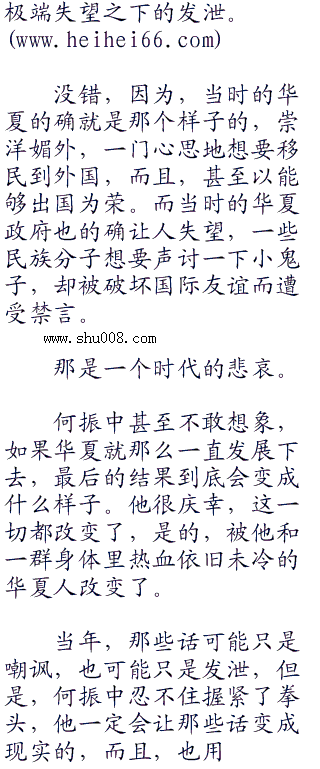 极端失望之下的发泄。
(www.heihei66.com)
没错，因为，当时的华
夏的确就是那个样子的，崇
洋媚外，一门心思地想要移
民到外国，而且，甚至以能
够出国为荣。而当时的华夏
政府也的确让人失望，一些
民族分子想要声讨一下小鬼
子，却被破坏国际友谊而遭
受禁言。
www.shu008.com
那是一个时代的悲哀。
何振中甚至不敢想象，
如果华夏就那么一直发展下
去，最后的结果到底会变成
什么样子。他很庆幸，这一
切都改变了，是的，被他和
一群身体里热血依旧未冷的
华夏人改变了。
当年，那些话可能只是
嘲讽，也可能只是发泄，但
是，何振中忍不住握紧了拳
头，他一定会让那些话变成
现实的，而且，也用